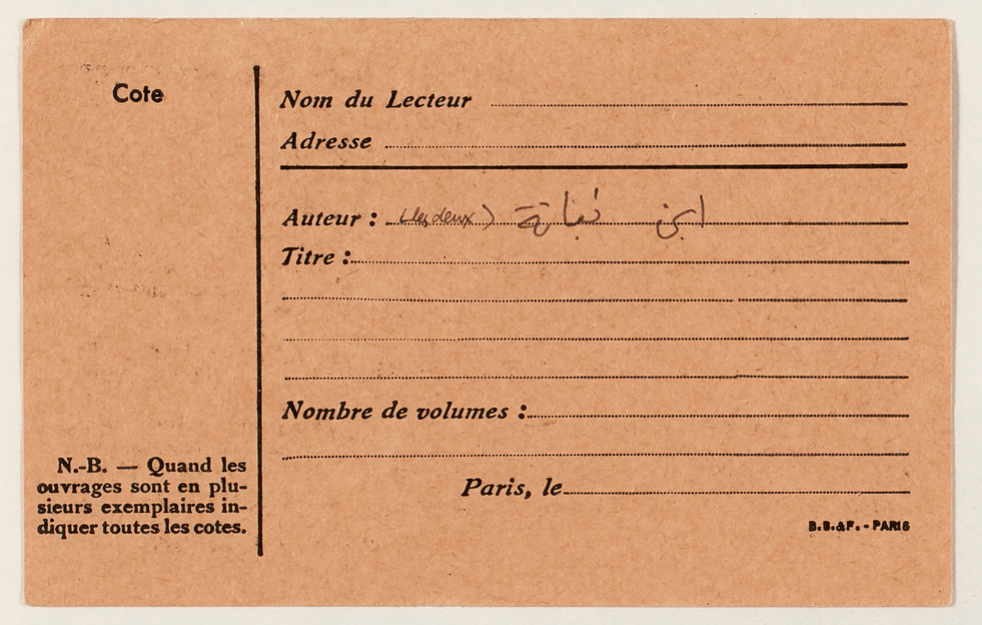 Cote
Nom du Lecteur
Adresse
Auteur : (les deux) ابن نباتة
Titre :
Nombre de volumes :
Paris, le
N.-B. — Quand les
ouvrages sont en plu-
sieurs exemplaires in-
diquer toutes les cotes.
B.B.&F. - PARIS